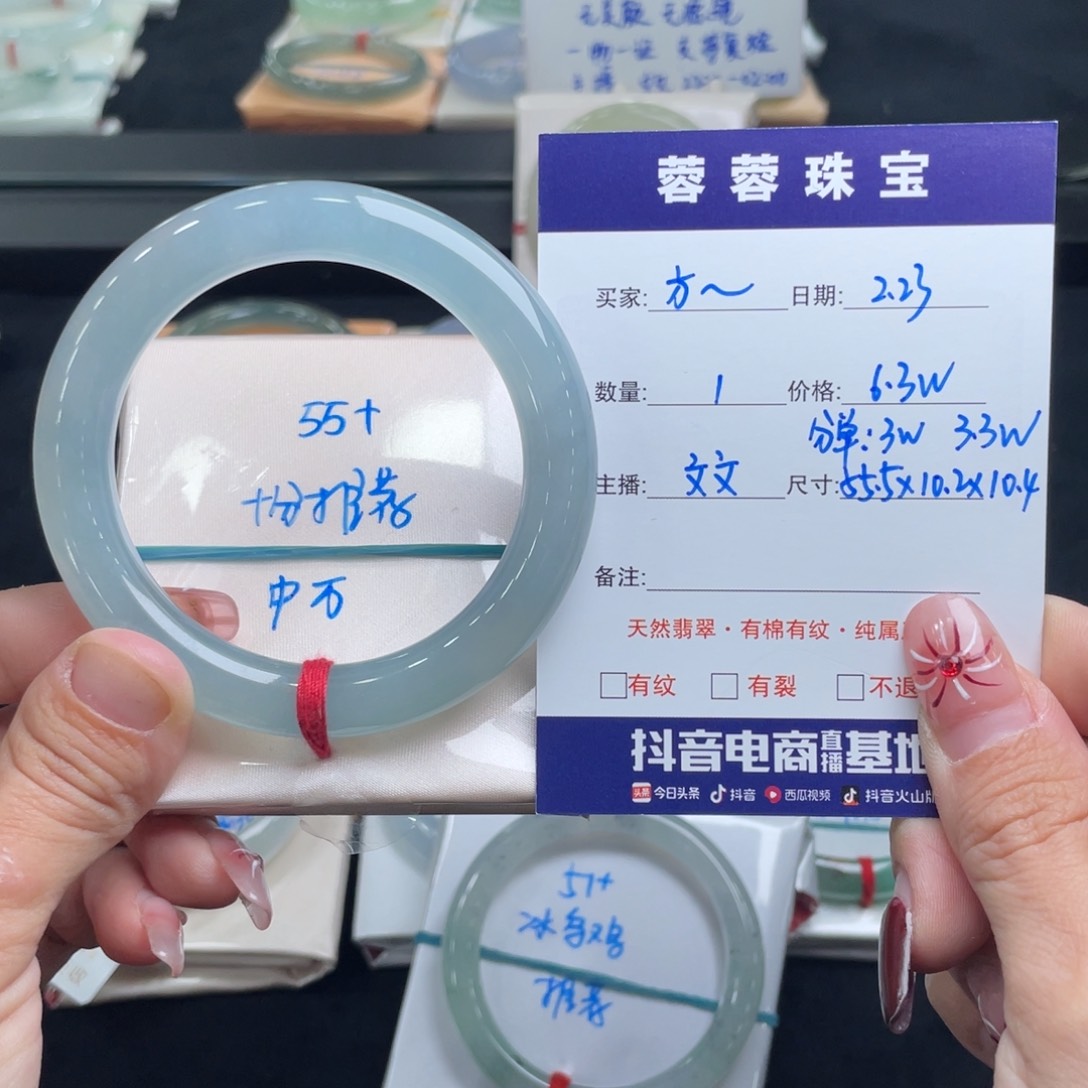 一物一证 支持复检
蓉蓉珠宝
买家: 方~ 日期: 2.23
数量: 1 价格: 6.3W
分单: 3W 3.3W
主播: 文文 尺寸: 55.5x10.2x10.4
备注:
天然翡翠·有棉有纹·纯属
有纹 有裂 不退
抖音电商直播基地
头条 今日头条 抖音 西瓜视频 抖音火山版
55+
十分推荐
中万
57+
冰乌鸡
推荐